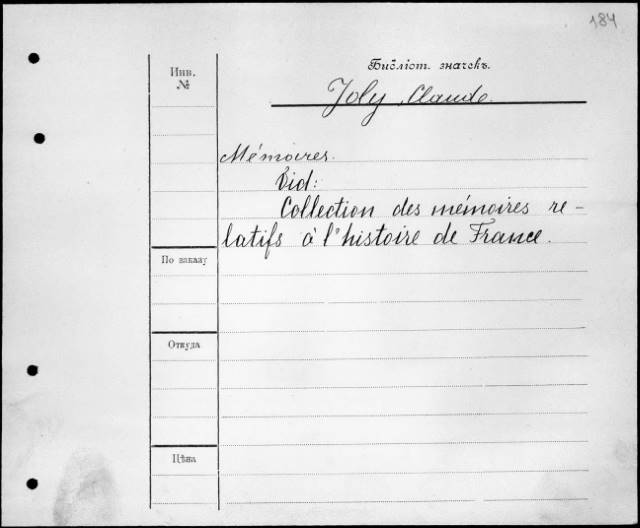 184
Библіот. значекъ.
Инв.
№
Joly Claude.
Mémoires.
Vid:
Collection des mémoires re-
latifs à l'histoire de France.
По заказу
Откуда
Цѣна